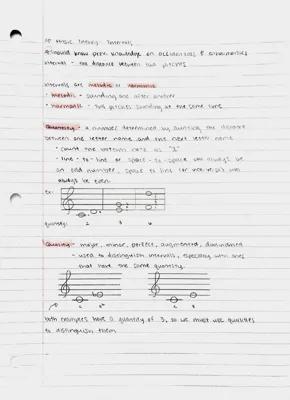 AP Music Theory: Intervals
should know prior knowledge on accidentals & enharmonics
Intervals - the distance between two pitches
Intervals are melodic or harmonic
• melodic - sounding one after another
• harmonic - two pitches sounding at the same time
Quantity - a number determined by counting the distance
between one letter name and the next letter name
• count the bottom note as "1"
• line - to - line or space - to - space will always be
an odd number, space to line (or vice versa) will
always be even.
ex:
quantity: 2 3 6
Quality - major, minor, perfect, augmented, diminished
- used to distinguish intervals, especially with ones
that have the same quantity.
both examples have a quantity of 3, so we must use qualities
to distinguish them